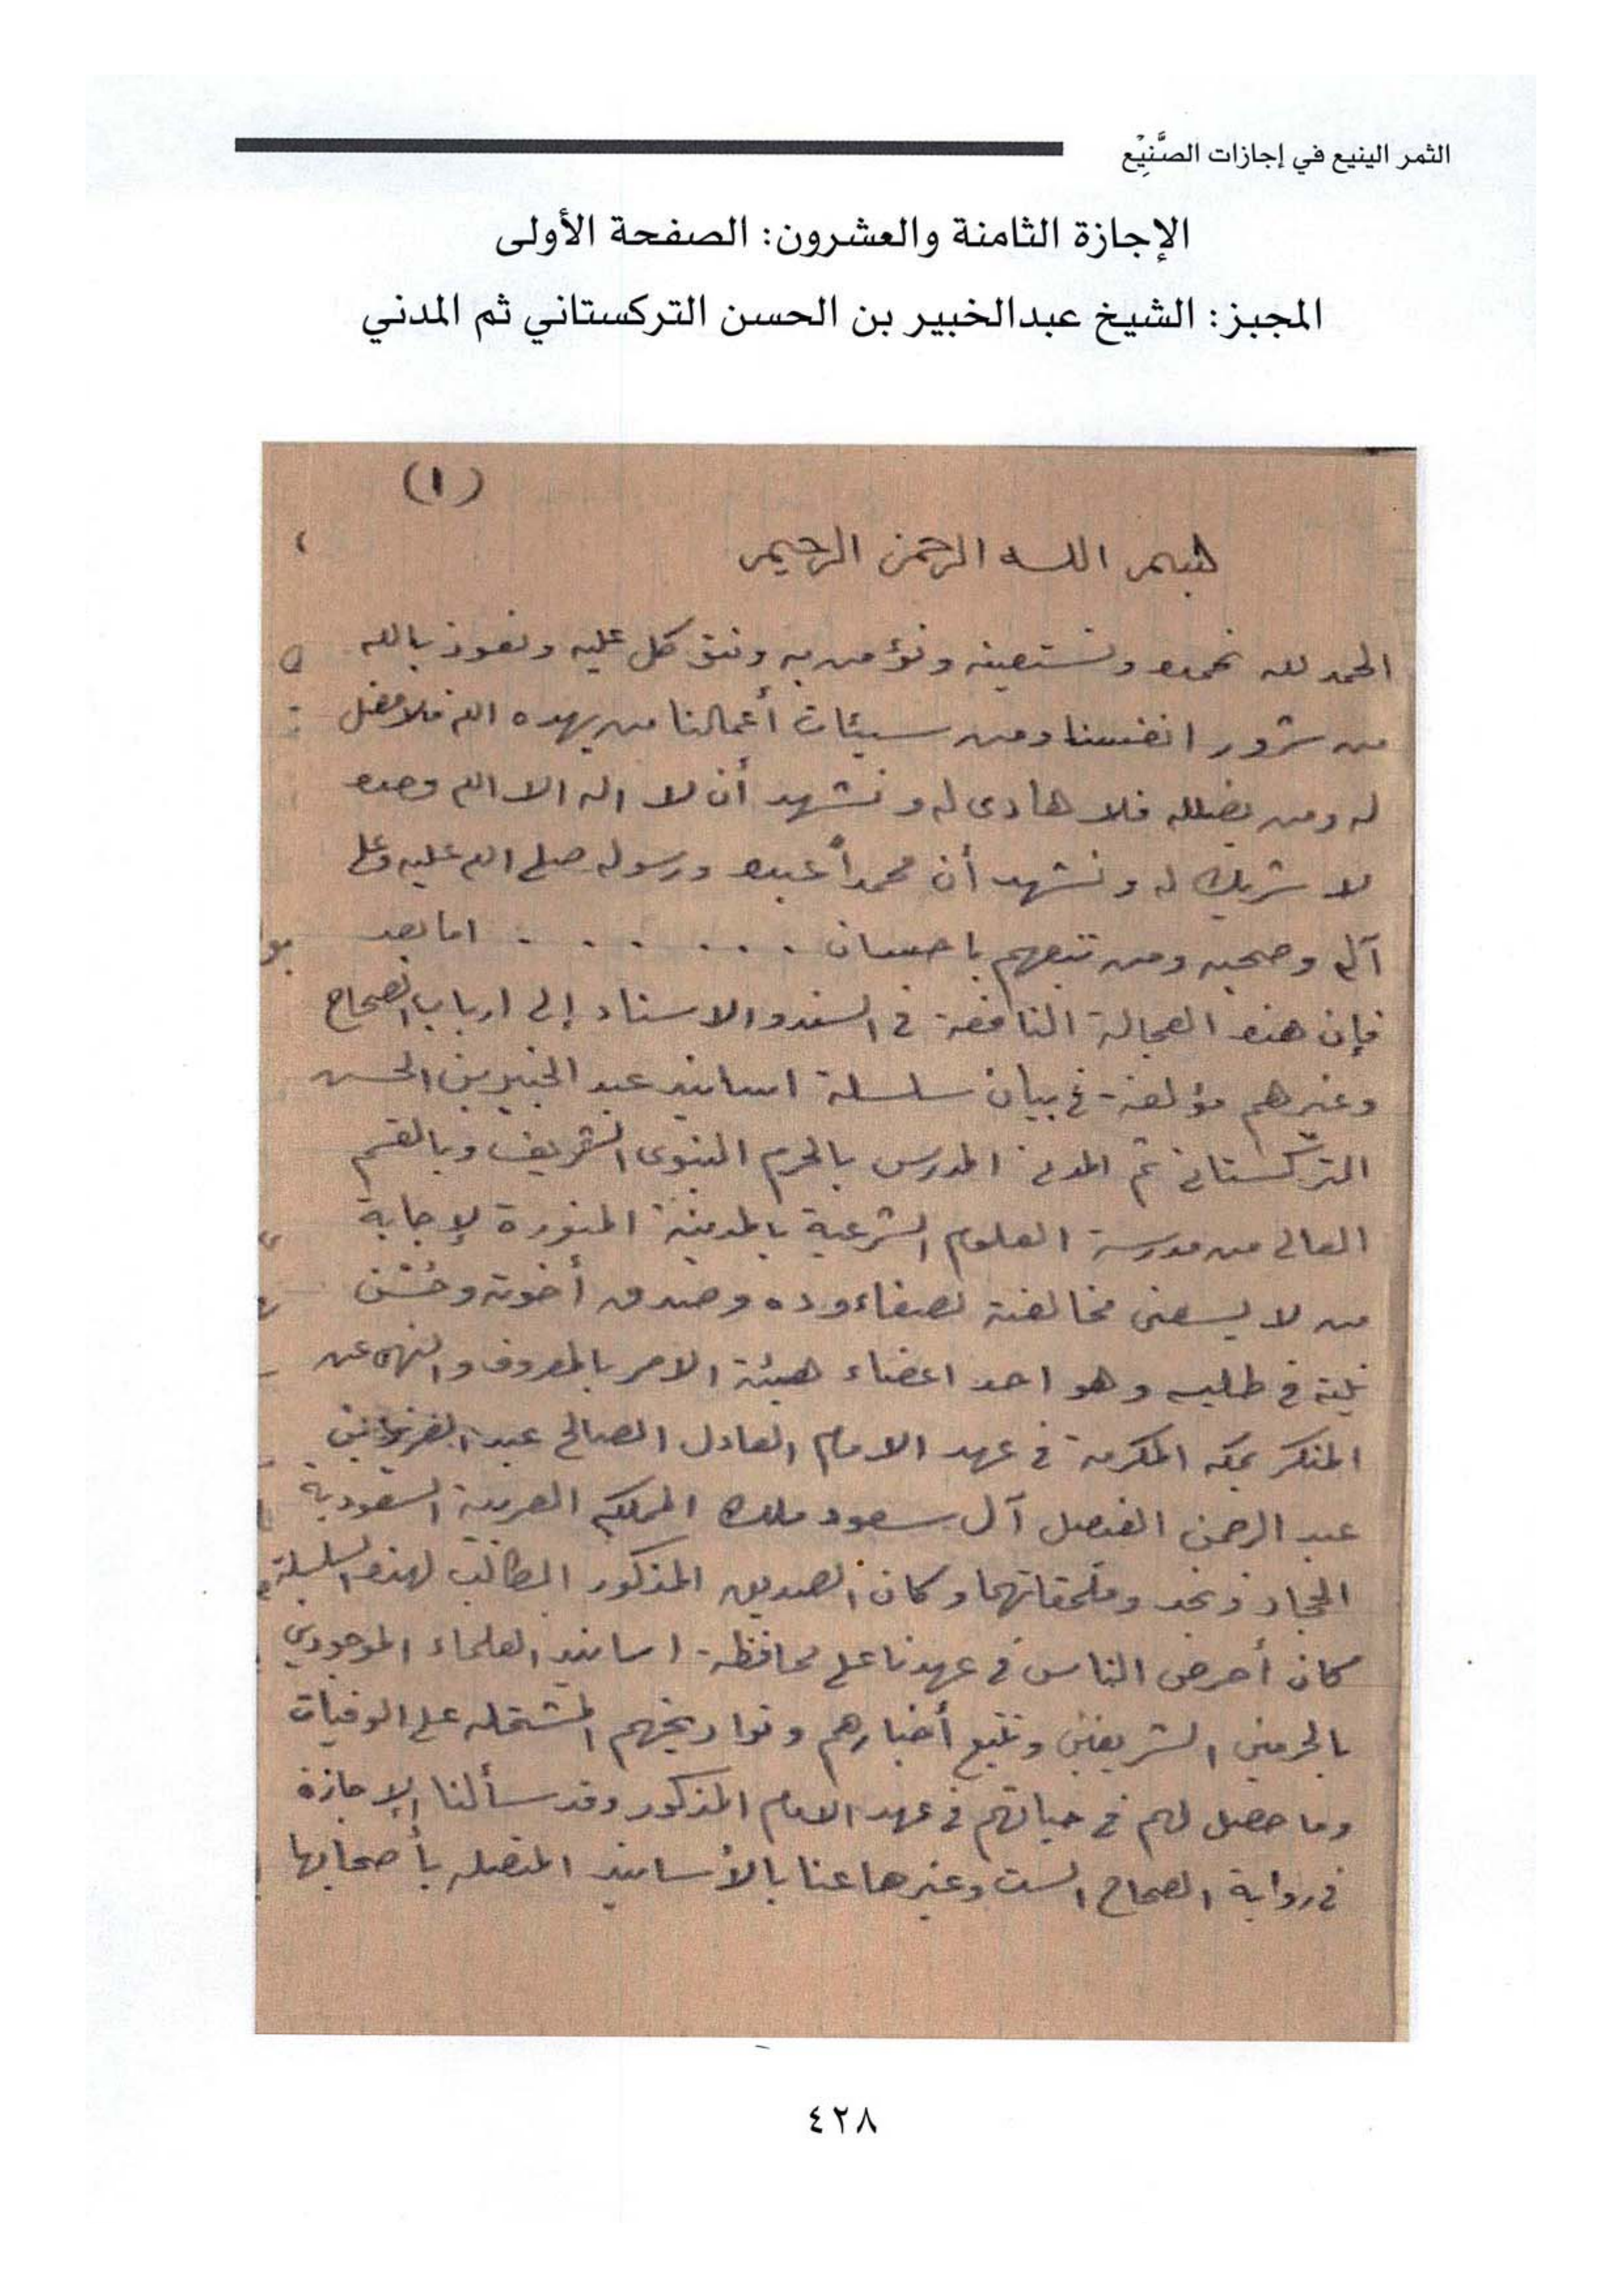 الثمر الينيع في إجازات الصَّنِيْع
الإجازة الثامنة والعشرون: الصفحة الأولى
المجبز: الشيخ عبدالخبير بن الحسن التركستاني ثم المدني
(١)
بسم اللـه الرحمن الرحيم
الحمد لله نحمده ونستعينه ونؤمن به ونتوكل عليه ونعوذ بالله
من شرور انفسنا ومن سيئات أعمالنا من يهده الله فلا مضل
له ومن يضلله فلا هادى له ونشهد أن لا اله الا الله وحده
لا شريك له ونشهد أن محمداً عبده ورسوله صلى الله عليه وعلى
آله وصحبه ومن تبعهم باحسان . . . . . . . اما بعد
فإن هذه العجالة النافعة في السند والاسناد إلى ارباب الصحاح
وغيرهم مؤلفة في بيان سلسلة اسانيد عبد الخبير بن الحسن
التركستاني ثم المدني المدرس بالحرم النبوى الشريف وبالقسم
العالى من مدرسة العلوم الشرعية بالمدينة المنورة لإجابة
من لا يسعنى مخالفته لصفاء وده وصدق أخوته وحُسْن
نيته في طلبه وهو احد اعضاء هيئة الامر بالمعروف والنهى عن
المنكر بمكه المكرمة في عهد الامام العادل الصالح عبد العزيز بن
عبد الرحمن الفيصل آل سعود ملك المملكه العربية السعودية
الحجاز ونجد وملحقاتهما وكان الصديق المذكور الطالب لهذه السلسلة
كان أحرص الناس في عهدنا على محافظة اسانيد العلماء الموجودين
بالحرمين الشريفين وتتبع أخبارهم وتواريخهم المشتمله على الوفيات
وما حصل لهم في حياتهم في عهد الامام المذكور وقد سألنا الإجازة
في رواية الصحاح الست وغيرها عنا بالأسانيد المتصله بأصحابها
٤٢٨